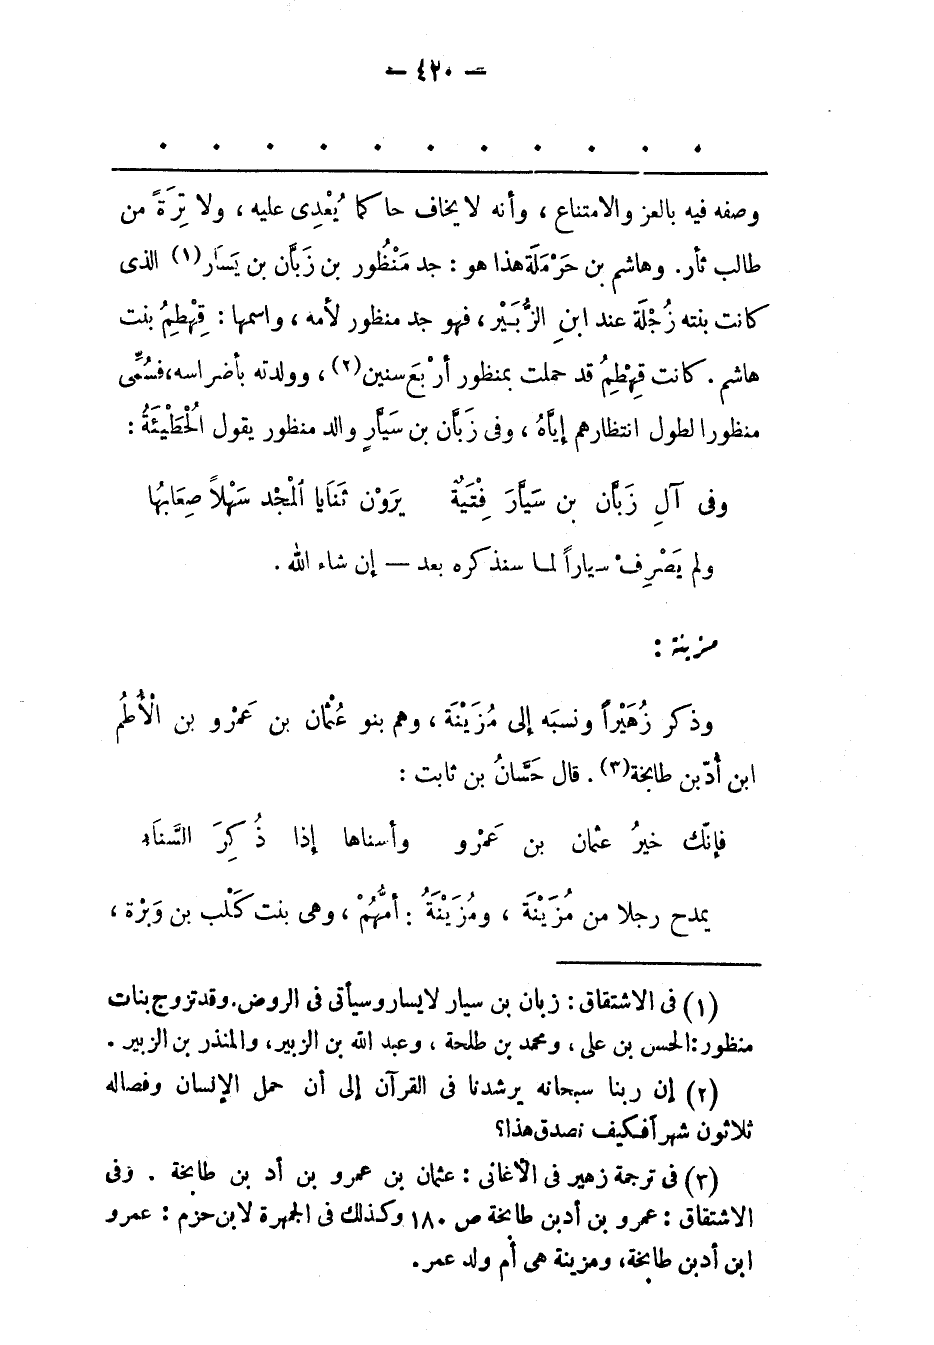 — ٤٢٠ —
وصفه فيه بالعز والامتناع ، وأنه لا يخاف حاكما يُعْدِى عليه ، ولا تِرَةً من
طالب ثأر. وهاشم بن حَرْمَلَة هذا هو : جد مَنْظُور بن زَبَّان بن يَسَار(١) الذى
كانت بنته زُجْلَة عند ابنِ الزُّبَيْر ، فهو جد منظور لأمه ، واسمها : قِهْطِمُ بنت
هاشم . كانت قِهْطِمُ قد حملت بمنظور أرْبَعَ سنين(٢) ، وولدته بأضراسه،فسُمِّى
منظورا لطول انتظارهم إيَّاهُ ، وفى زَبَّان بن سَيَّارٍ والد منظور يقول الْحُطَيْئَةُ :
وفى آلِ زَبَّان بن سَيَّارَ فِتْيَةٌ يرَوْن ثَنَايا الْمَجْد سَهْلاً صِعَابُها
ولم يَصْرِفْ سياراً لما سنذكره بعد — إن شاء الله .
مزينة :
وذكر زُهَيْراً ونسبَه إلى مُزَيْنَة ، وهم بنو عُثْمان بن عَمْرو بن الْأُطُم
ابن أُدّبن طابخة(٣) . قال حَسَّانُ بن ثابت :
فإنّك خيرُ عثمان بن عَمْرو وأسناها إذا ذُكِرَ السَّنَاءِ
يمدح رجلا من مُزَيْنَة ، ومُزَيْنَةُ : أمُّهُمْ ، وهى بنت كَلْب بن وَبْرَة ،
(١) فى الاشتقاق : زبان بن سيار لايسار وسيأتى فى الروض.وقد تزوج بنات
منظور:الحسن بن على ، ومحمد بن طلحة ، وعبد الله بن الزبير، والمنذر بن الزبير .
(٢) إن ربنا سبحانه يرشدنا فى القرآن إلى أن حمل الإنسان وفصاله
ثلاثون شهراً فكيف نصدق هذا؟
(٣) فى ترجمة زهير فى الأغانى : عثمان بن عمرو بن أد بن طابخة . وفى
الاشتقاق : عمرو بن أدبن طابخة ص ١٨٠ وكذلك فى الجمهرة لابن حزم : عمرو
ابن أدبن طابخة، ومزينة هى أم ولد عمر.